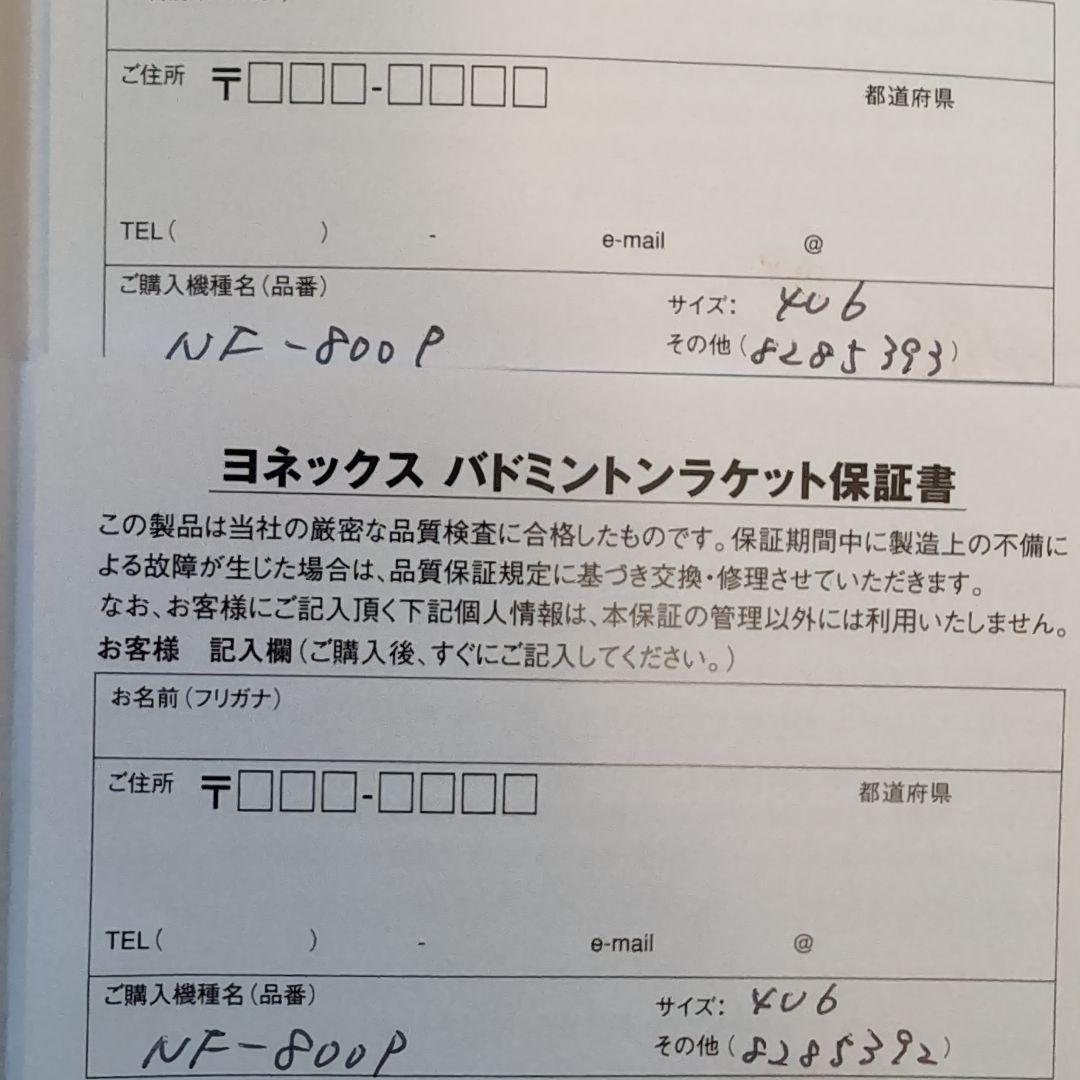 ご住所 〒□□□-□□□□ 都道府県
TEL( ) - e-mail @
ご購入機種名(品番)
サイズ: 4U6
NF-800P
その他(8285393)
ヨネックス バドミントンラケット保証書
この製品は当社の厳密な品質検査に合格したものです。保証期間中に製造上の不備に
よる故障が生じた場合は、品質保証規定に基づき交換・修理させていただきます。
なお、お客様にご記入頂く下記個人情報は、本保証の管理以外には利用いたしません。
お客様 記入欄(ご購入後、すぐにご記入してください。)
お名前(フリガナ)
ご住所 〒□□□-□□□□ 都道府県
TEL( ) - e-mail @
ご購入機種名(品番)
サイズ: 4U6
NF-800P
その他(8285392)